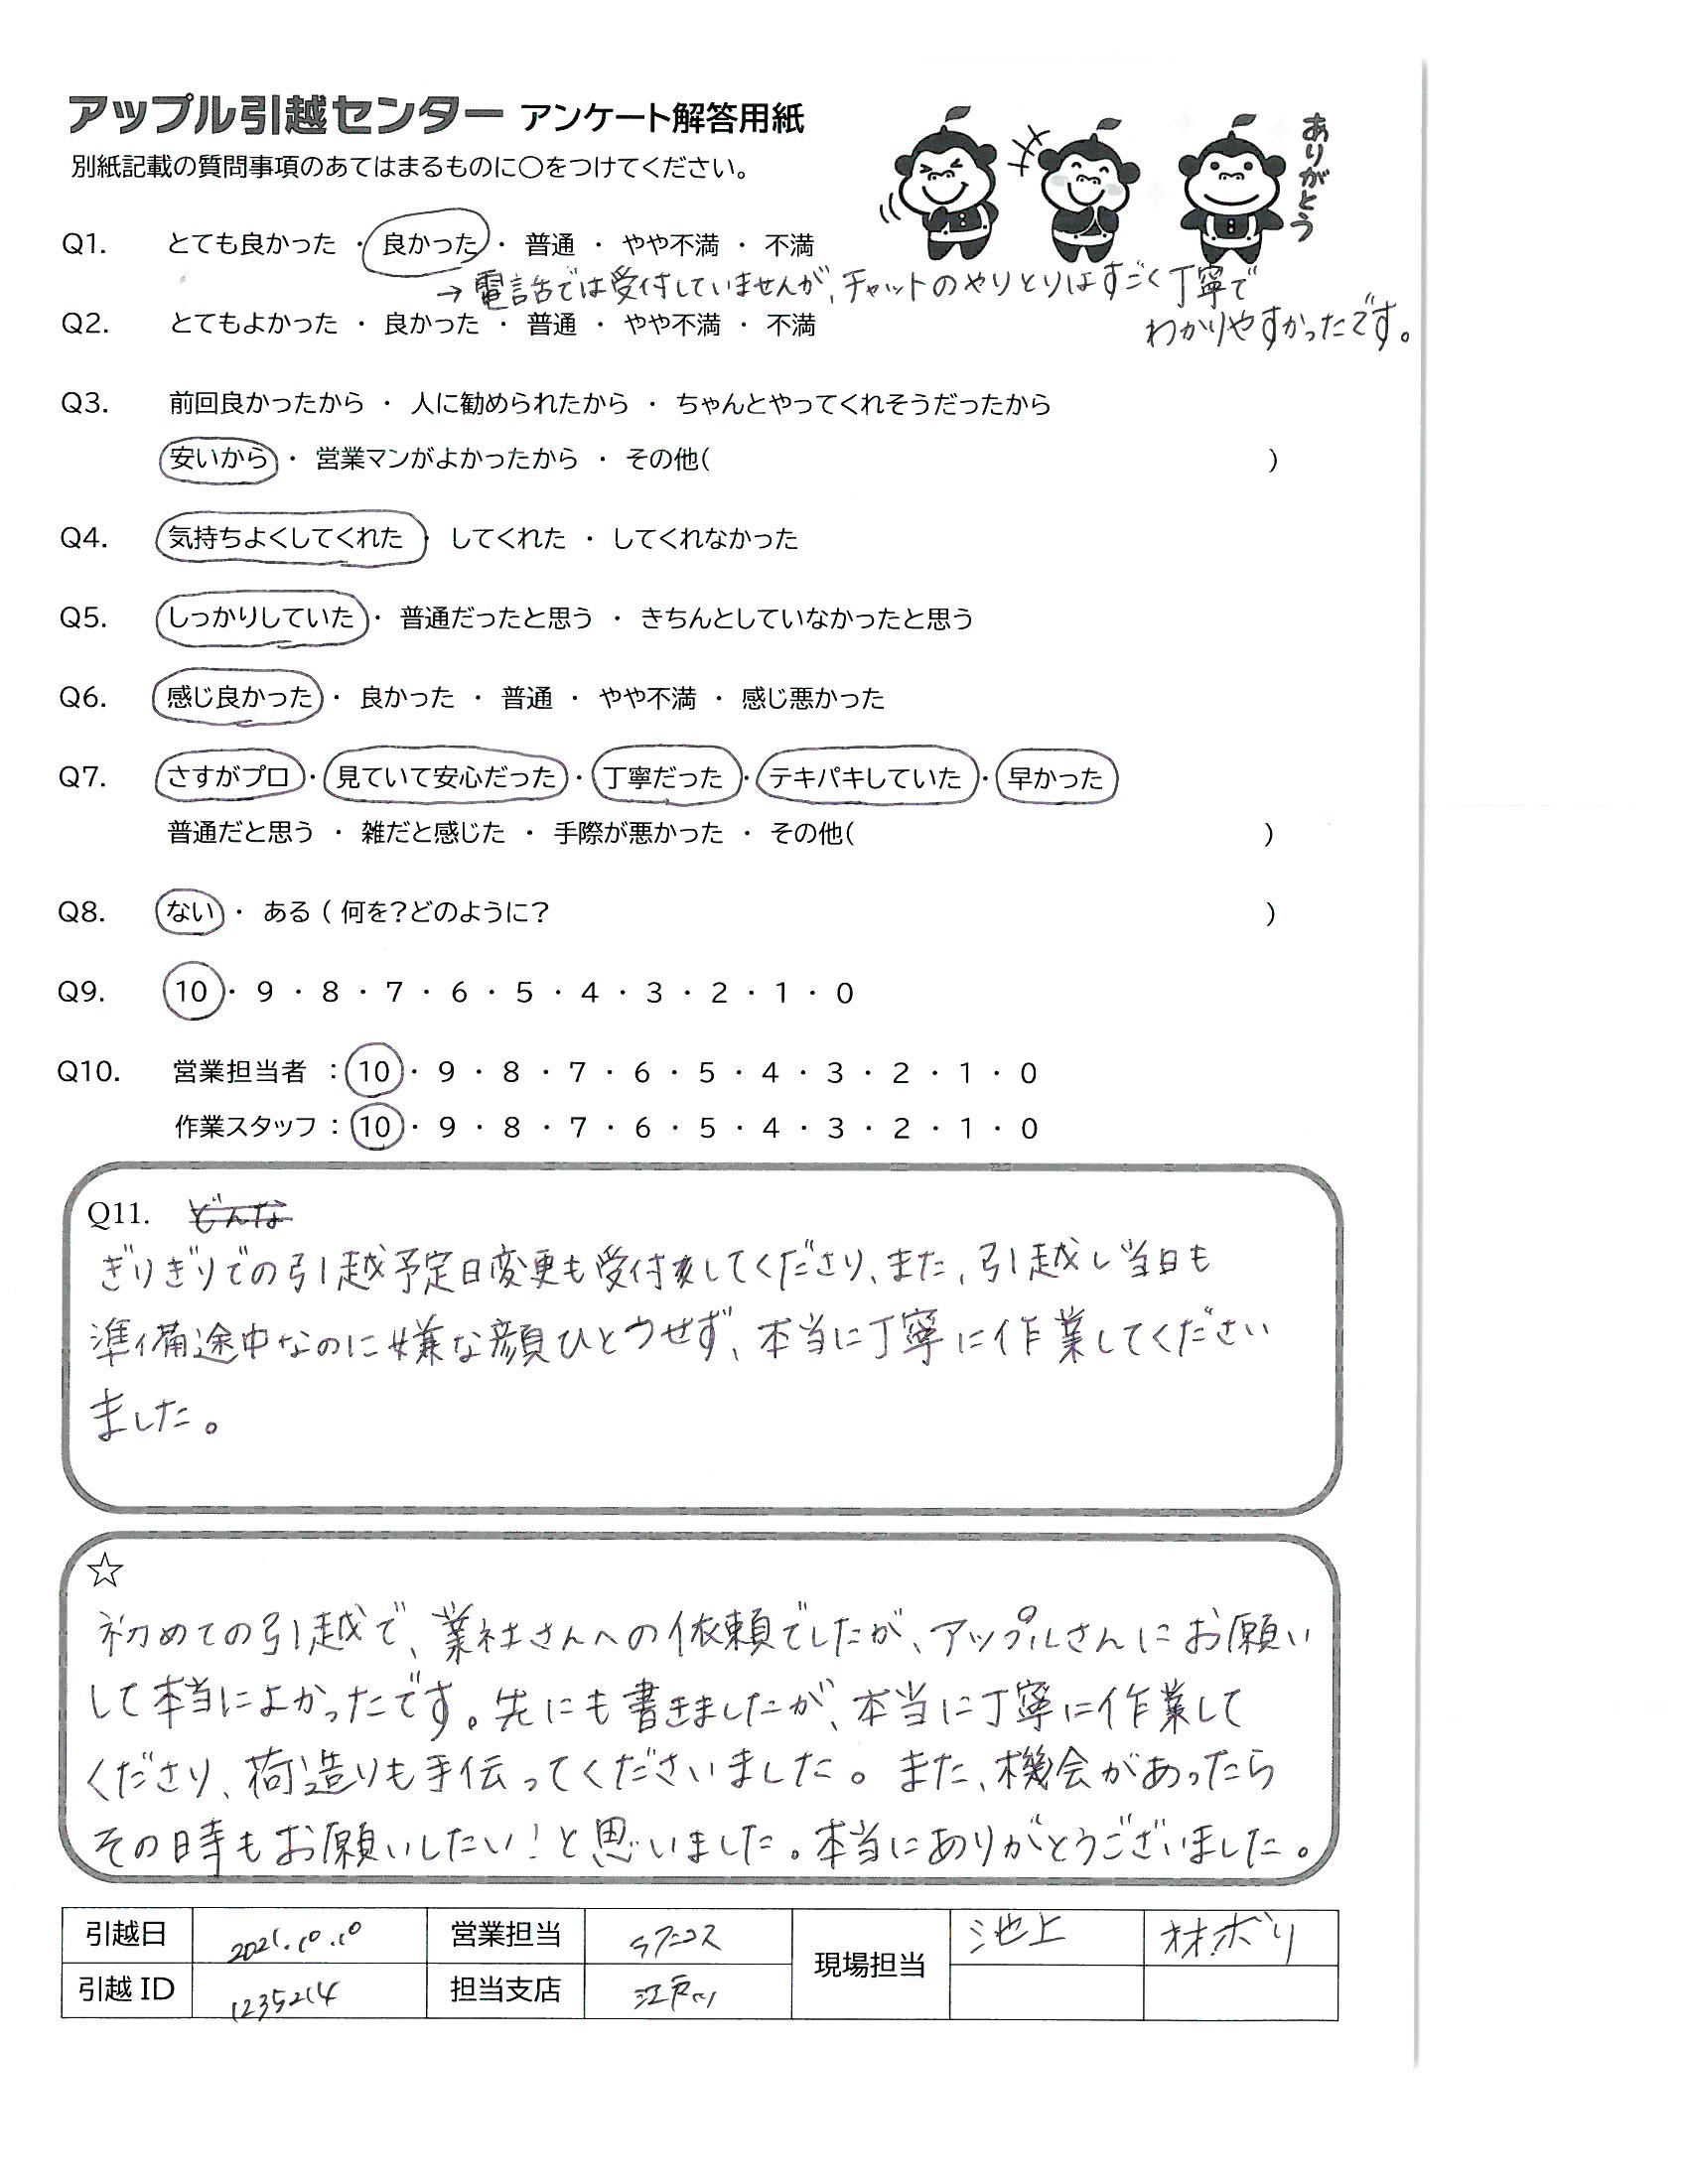 アップル引越センター アンケート解答用紙
ありがとう
別紙記載の質問事項のあてはまるものに○をつけてください。
Q1. とても良かった ・ 良かった ・ 普通 ・ やや不満 ・ 不満
→ 電話では受付していませんが、チャットのやりとりはすごく丁寧で
わかりやすかったです。
Q2. とてもよかった ・ 良かった ・ 普通 ・ やや不満 ・ 不満
Q3. 前回良かったから ・ 人に勧められたから ・ ちゃんとやってくれそうだったから
安いから ・ 営業マンがよかったから ・ その他( )
Q4. 気持ちよくしてくれた ・ してくれた ・ してくれなかった
Q5. しっかりしていた ・ 普通だったと思う ・ きちんとしていなかったと思う
Q6. 感じ良かった ・ 良かった ・ 普通 ・ やや不満 ・ 感じ悪かった
Q7. さすがプロ ・ 見ていて安心だった ・ 丁寧だった ・ テキパキしていた ・ 早かった
普通だと思う ・ 雑だと感じた ・ 手際が悪かった ・ その他( )
Q8. ない ・ ある ( 何を?どのように? )
Q9. 10 ・ 9 ・ 8 ・ 7 ・ 6 ・ 5 ・ 4 ・ 3 ・ 2 ・ 1 ・ 0
Q10. 営業担当者 : 10 ・ 9 ・ 8 ・ 7 ・ 6 ・ 5 ・ 4 ・ 3 ・ 2 ・ 1 ・ 0
作業スタッフ : 10 ・ 9 ・ 8 ・ 7 ・ 6 ・ 5 ・ 4 ・ 3 ・ 2 ・ 1 ・ 0
Q11. どんな
ぎりぎりでの引越予定日変更も受付してくださり、また、引越し当日も
準備途中なのに嫌な顔ひとつせず、本当に丁寧に作業してください
ました。
☆
初めての引越で、業社さんへの依頼でしたが、アップルさんにお願い
して本当によかったです。先にも書きましたが、本当に丁寧に作業して
くださり、荷造りも手伝ってくださいました。また、機会があったら
その時もお願いしたい!と思いました。本当にありがとうございました。
引越日 2021.10.10 営業担当 現場担当 池上
引越 ID 1235214 担当支店 江戸川